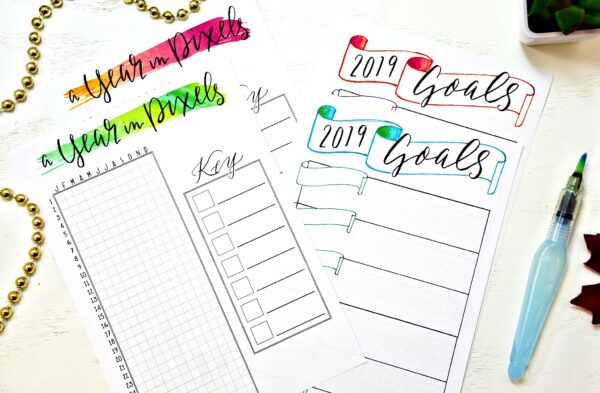 a Year in Pixels
a Year in Pixels
Key
J F M A M J J A S O N D
1
2
3
4
5
6
7
8
9
10
11
12
13
14
15
16
17
18
19
20
21
22
23
2019 Goals
2019 Goals